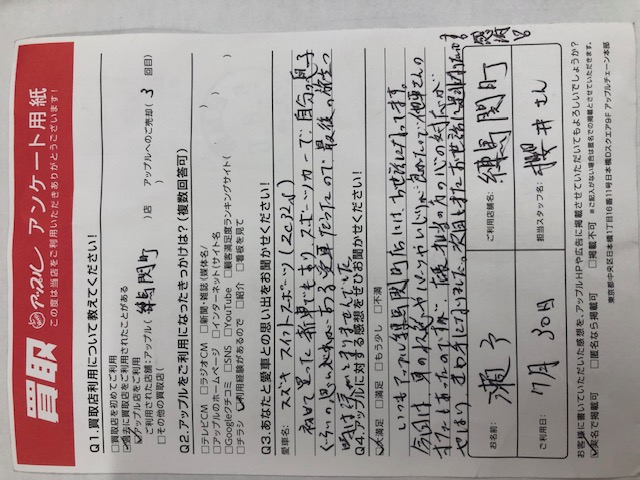 買取 アップル アンケート用紙
この度は当店をご利用いただきありがとうございます!
Q1.買取店利用について教えてください!
□買取店を初めてご利用
☑過去に買取店をご利用されたことがある
☑アップル店をご利用
ご利用された店舗:アップル( 練馬関町 )店 アップルへのご売却( 3 回目)
□その他の買取店(
Q2.アップルをご利用になったきっかけは?(複数回答可)
□テレビCM □ラジオCM □新聞・雑誌(媒体名/ )
□アップルのホームページ □インターネット(サイト名 )
□Googleクチコミ □SNS □YouTube □顧客満足度ランキングサイト( )
□チラシ ☑利用経験があるので □紹介 □看板を見て
Q3.あなたと愛車との思い出をお聞かせください!
愛車名: スズキ スイフトスポーツ(ZC32S)
初めて買った新車でもあり スポーツカーで、自分の息子
ぐらいの思い入れがある愛車だったので 最後の
時は涙がとまりませんでした
Q4.アップルに対する感想をぜひお聞かせください!
☑大満足 □満足 □もう少し □不満
いつもアップル練馬関町店には、お世話になってます。
今回は、
お名前: 瀬戸
ご利用店舗名: 練馬関町
ご利用日: 7月 30日
担当スタッフ名: 櫻井さん
お客様に書いていただいた感想を、アップルHPや広告に掲載させていただいてもよろしいでしょうか?
☑実名で掲載可 □匿名なら掲載可 □掲載不可 ※ご記入がない場合は匿名での掲載とさせていただきます。
東京都中央区日本橋1丁目16番11号日本橋Dスクエア9F アップルチェーン本部